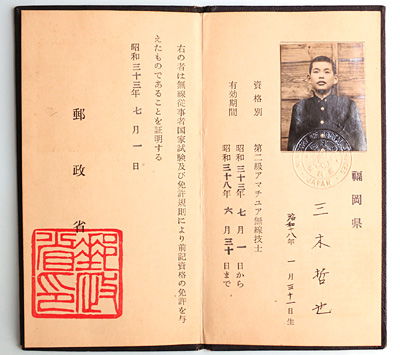 福岡県
三木哲也
昭和一八年 一月三十一日生
資格別 第二級アマチュア無線技士
有効期間 昭和三十三年七月一日から
昭和三十八年六月三十日まで
右の者は無線従事者国家試験及び免許規則により前記資格の免許を与
えたものであることを証明する
昭和三十三年七月一日
郵政省
郵政省印
JAPAN